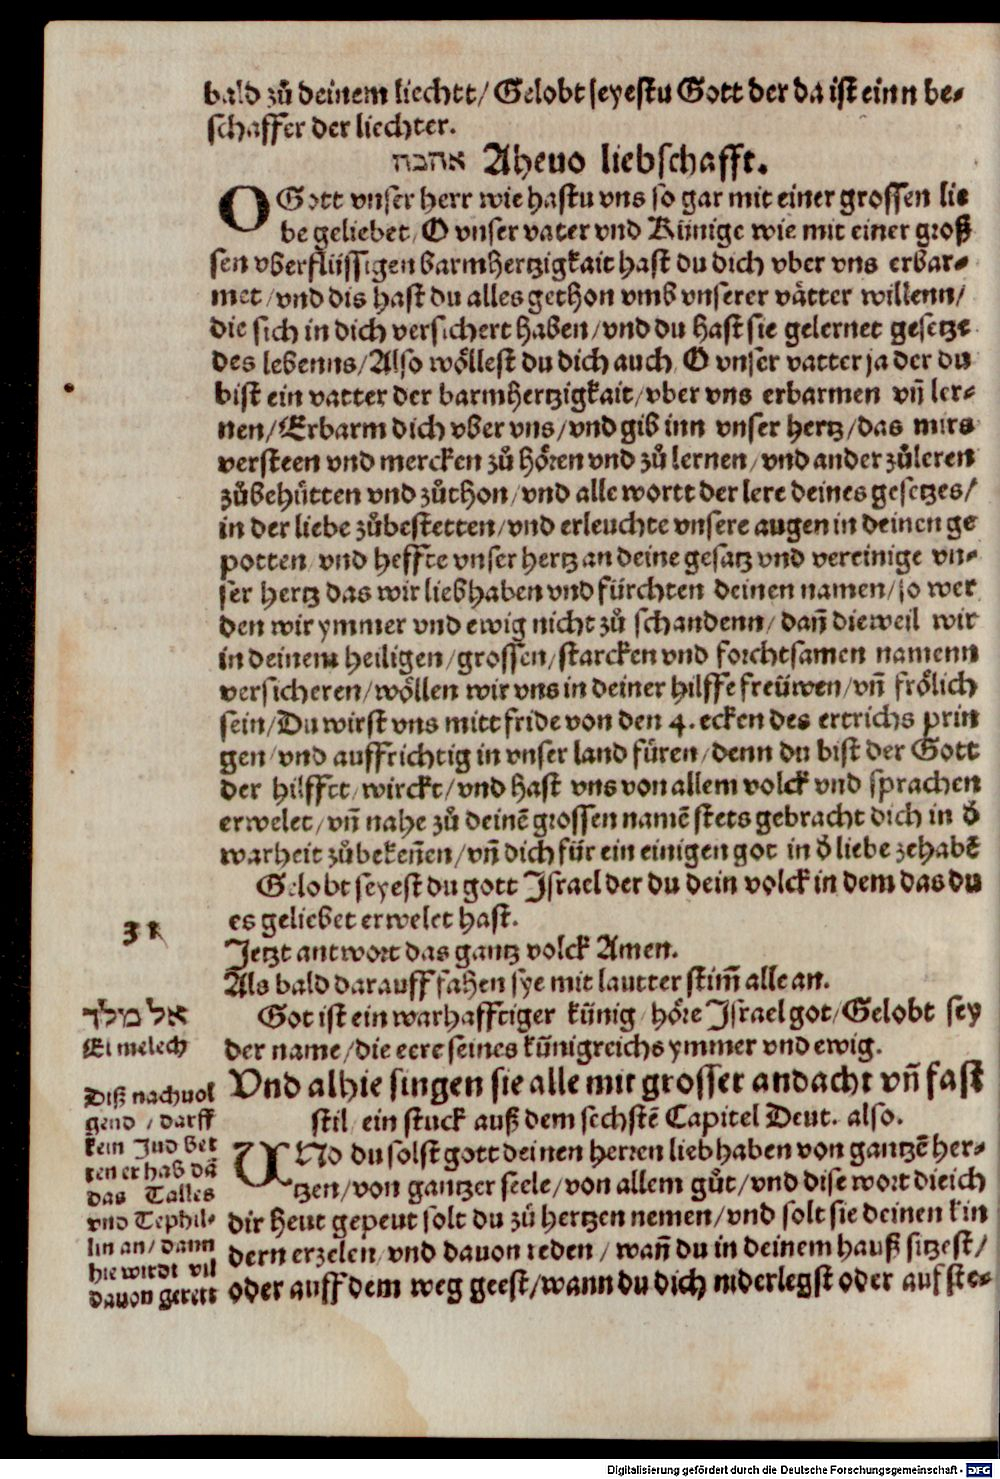 bald zů deinem liechtt/ Gelobt seyestu Gott der da ist einn be-
schaffer der liechter.
אהבה Ahevo liebschafft.
O Gott vnser herr wie hastu vns so gar mit einer grossen lie
be geliebet/ O vnser vater vnd Künige wie mit einer groß
sen vberflüssigen barmhertzigkait hast du dich vber vns erbar-
met/vnd dis hast du alles gethon vmb vnserer vätter willenn/
die sich in dich versichert haben/vnd du hast sie gelernet gesetze
des lebenns/Also wöllest du dich auch O vnser vatter ja der du
bist ein vatter der barmhertzigkait/vber vns erbarmen vñ ler-
nen/Erbarm dich vber vns/vnd gib inn vnser hertz/das mirs
versteen vnd mercken zů hören vnd zů lernen/vnd ander zůleren
zůbehütten vnd zůthon/vnd alle wortt der lere deines gesetzes/
in der liebe zůbestetten/vnd erleuchte vnsere augen in deinen ge
potten/vnd heffte vnser hertz an deine gesatz vnd vereinige vn-
ser hertz das wir liebhaben vnd fürchten deinen namen/so wer
den wir ymmer vnd ewig nicht zů schandenn/dañ dieweil wir
in deinem heiligen/grossen/starcken vnd forchtsamen namenn
versicheren/wöllen wir vns in deiner hilffe freüwen/vñ frölich
sein/Du wirst vns mitt fride von den 4. ecken des ertrichs prin
gen/vnd auffrichtig in vnser land füren/denn du bist der Gott
der hilfft/wirckt/vnd hast vns von allem volck vnd sprachen
erwelet/vñ nahe zů deinē grossen namē stets gebracht dich in d̄
warheit zůbekeñen/vñ dich für ein einigen got in d̄ liebe zehabē
Gelobt seyest du gott Israel der du dein volck in dem das du
es geliebet erwelet hast.
31
Jetzt antwort das gantz volck Amen.
Als bald darauff fahen sye mit lautter stim̃ alle an.
אל מלך
El melech
Got ist ein warhafftiger künig/höre Israel got/Gelobt sey
der name/die eere seines künigreichs ymmer vnd ewig.
Vnd alhie singen sie alle mit grosser andacht vñ fast
stil/ein stuck auß dem sechstē Capitel Deut. also.
Diß nachuol
gend/darff
kein Jud bet
ten er hab dã
das Talles
vnd Tephil-
lin an/dann
hie wirdt vil
dauon gerett
VNd du solst gott deinen herren liebhaben von gantzē her-
tzen/von gantzer seele/von allem gůt/vnd dise wort die ich
dir heut gepeut solt du zů hertzen nemen/vnd solt sie deinen kin
dern erzelen/vnd dauon reden/wañ du in deinem hauß sitzest/
oder auff dem weg geest/wann du dich niderlegst oder aufste-
Digitalisierung gefördert durch die Deutsche Forschungsgemeinschaft - DFG